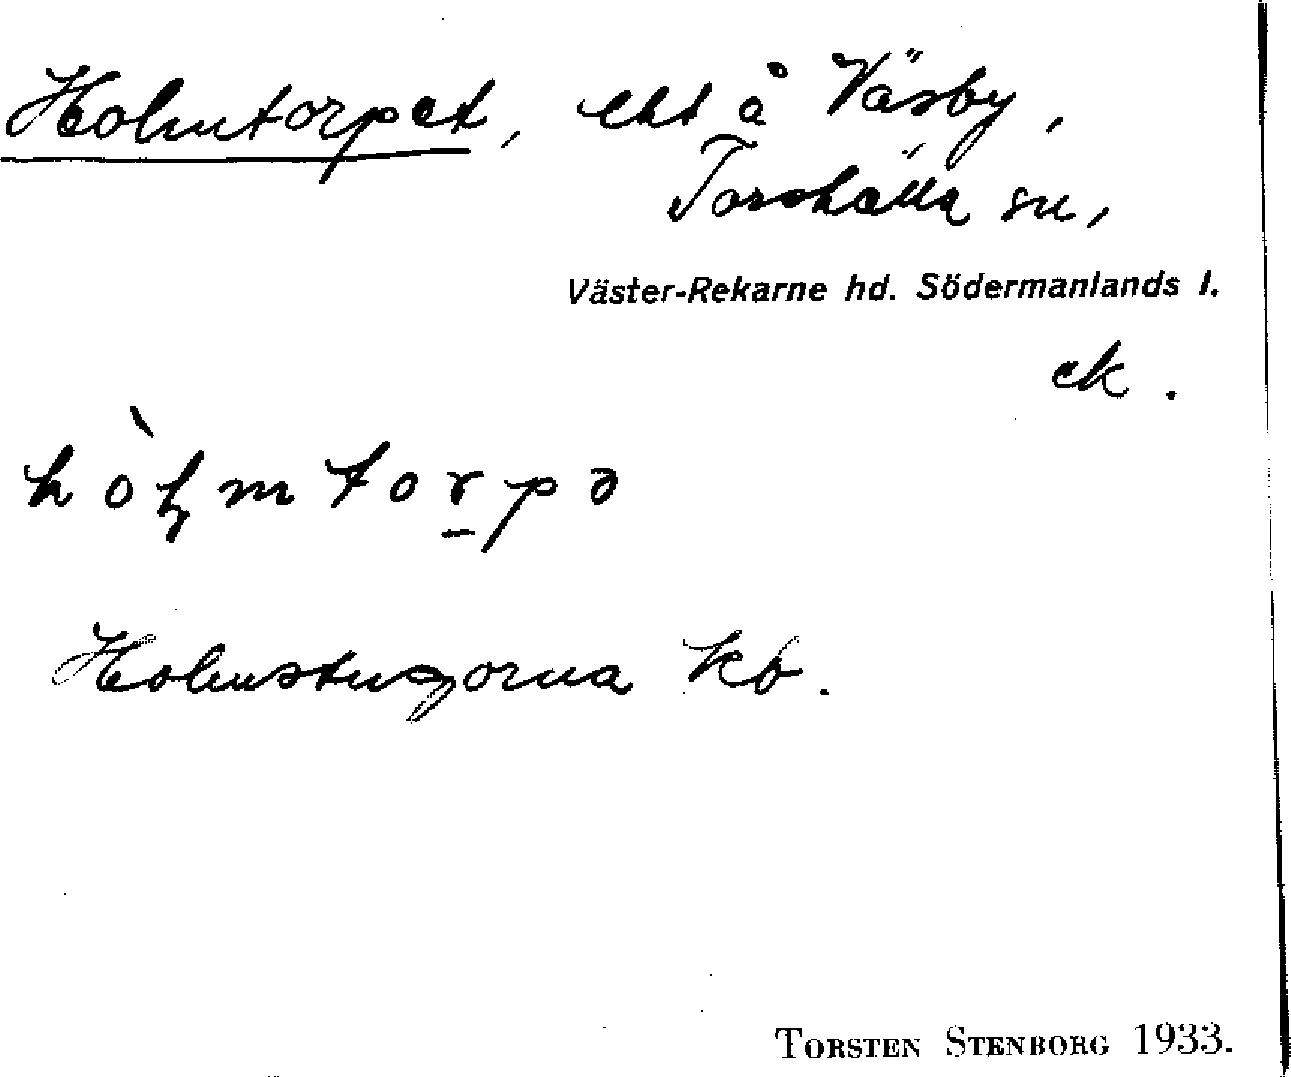 Holmtorpet, lht å Väsby,
Torshälla sn,
Väster-Rekarne hd. Södermanlands l.
ek.
hòłmtorpə
Holmstugorna kb.
TORSTEN STENBORG 1933.